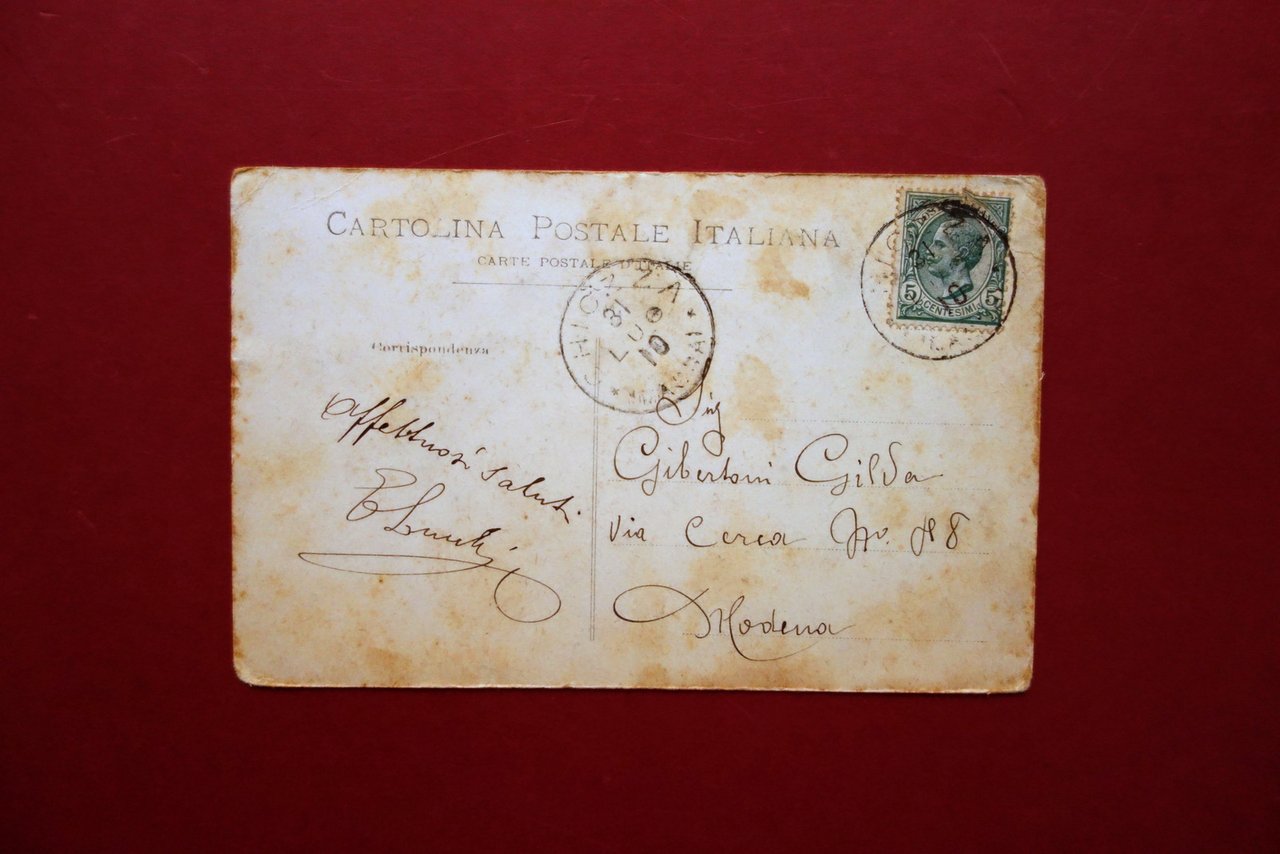 CARTOLINA POSTALE ITALIANA
CARTE POSTALE D'ITALIE
5 CENTESIMI 5
31 LUG 10
Corrispondenza
Affettuosi saluti
Sig
Gibertoni Gilda
Via Cerca No.
Modena